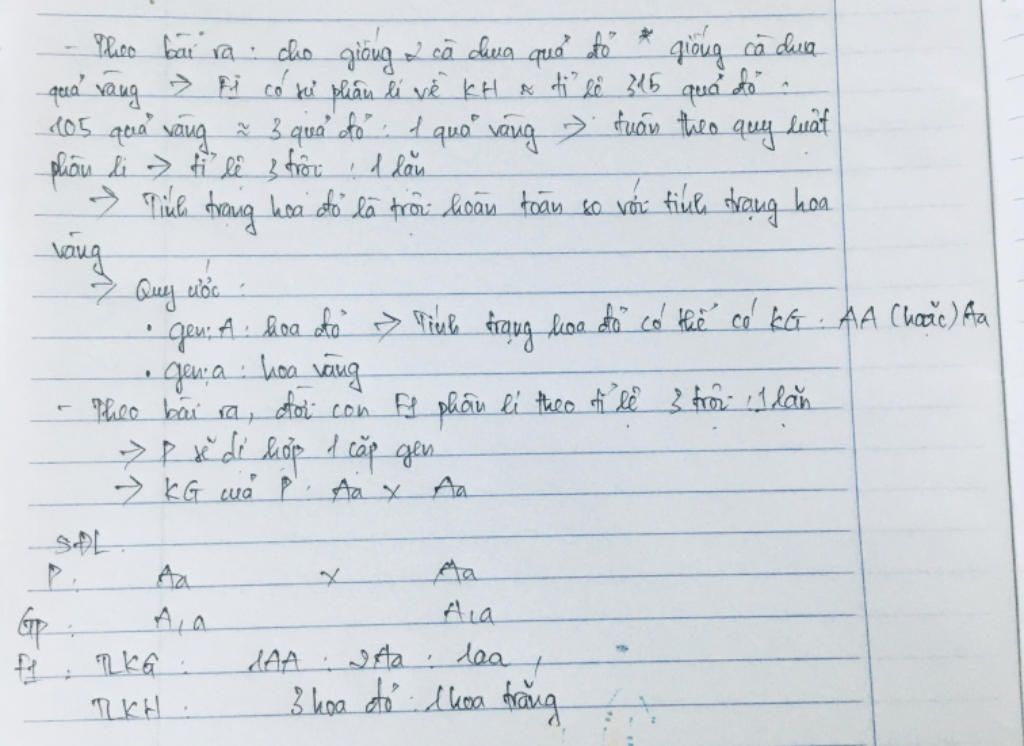 - Theo bài ra : cho giống 2 cà chua quả đỏ * giống cà chua
quả vàng → F1 có sự phân li về KH ≈ tỉ lệ 315 quả đỏ :
105 quả vàng ≈ 3 quả đỏ : 1 quả vàng → tuân theo quy luật
phân li → tỉ lệ 3 trội : 1 lặn
→ Tính trạng hoa đỏ là trội hoàn toàn so với tính trạng hoa
vàng
→ Quy ước :
• gen: A : hoa đỏ → Tính trạng hoa đỏ có thể có KG : AA (hoặc) Aa
• gen: a : hoa vàng
- Theo bài ra, đời con F1 phân li theo tỉ lệ 3 trội : 1 lặn
→ P sẽ dị hợp 1 cặp gen
→ KG của P : Aa x Aa
SĐL :
P : Aa x Aa
Gp : A, a A, a
F1 : TLKG : 1AA : 2Aa : 1aa ,
TLKH : 3 hoa đỏ : 1 hoa trắng